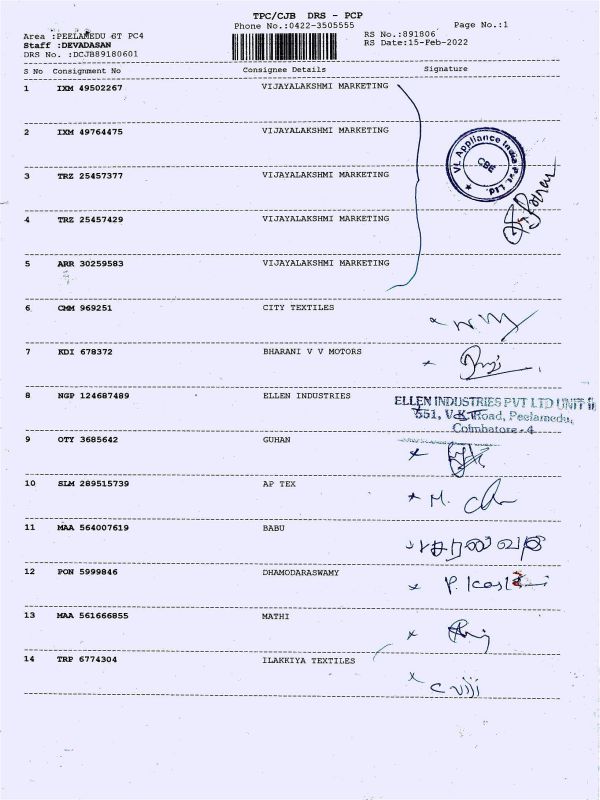 TPC/CJB DRS - PCP
Phone No.:0422-3505555
Page No.:1
Area :PEELAMEDU ST PC4
RS No.:891806
Staff :DEVADASAN
RS Date:15-Feb-2022
DRS No. :DCJB89180601
S No Consignment No Consignee Details Signature
1 IXM 49502267 VIJAYALAKSHMI MARKETING
2 IXM 49764475 VIJAYALAKSHMI MARKETING
VL Appliance India Pvt. Ltd.
CBE
3 TRZ 25457377 VIJAYALAKSHMI MARKETING
4 TRZ 25457429 VIJAYALAKSHMI MARKETING
5 ARR 30259583 VIJAYALAKSHMI MARKETING
6 CMM 969251 CITY TEXTILES
7 KDI 678372 BHARANI V V MOTORS
8 NGP 124687489 ELLEN INDUSTRIES
ELLEN INDUSTRIES PVT LTD UNIT II
551, V.K. Road, Peelamedu,
Coimbatore - 4
9 OTY 3685642 GUHAN
10 SLM 289515739 AP TEX
11 MAA 564007619 BABU
12 PON 5999846 DHAMODARASWAMY
13 MAA 561666855 MATHI
14 TRP 6774304 ILAKKIYA TEXTILES
C viji